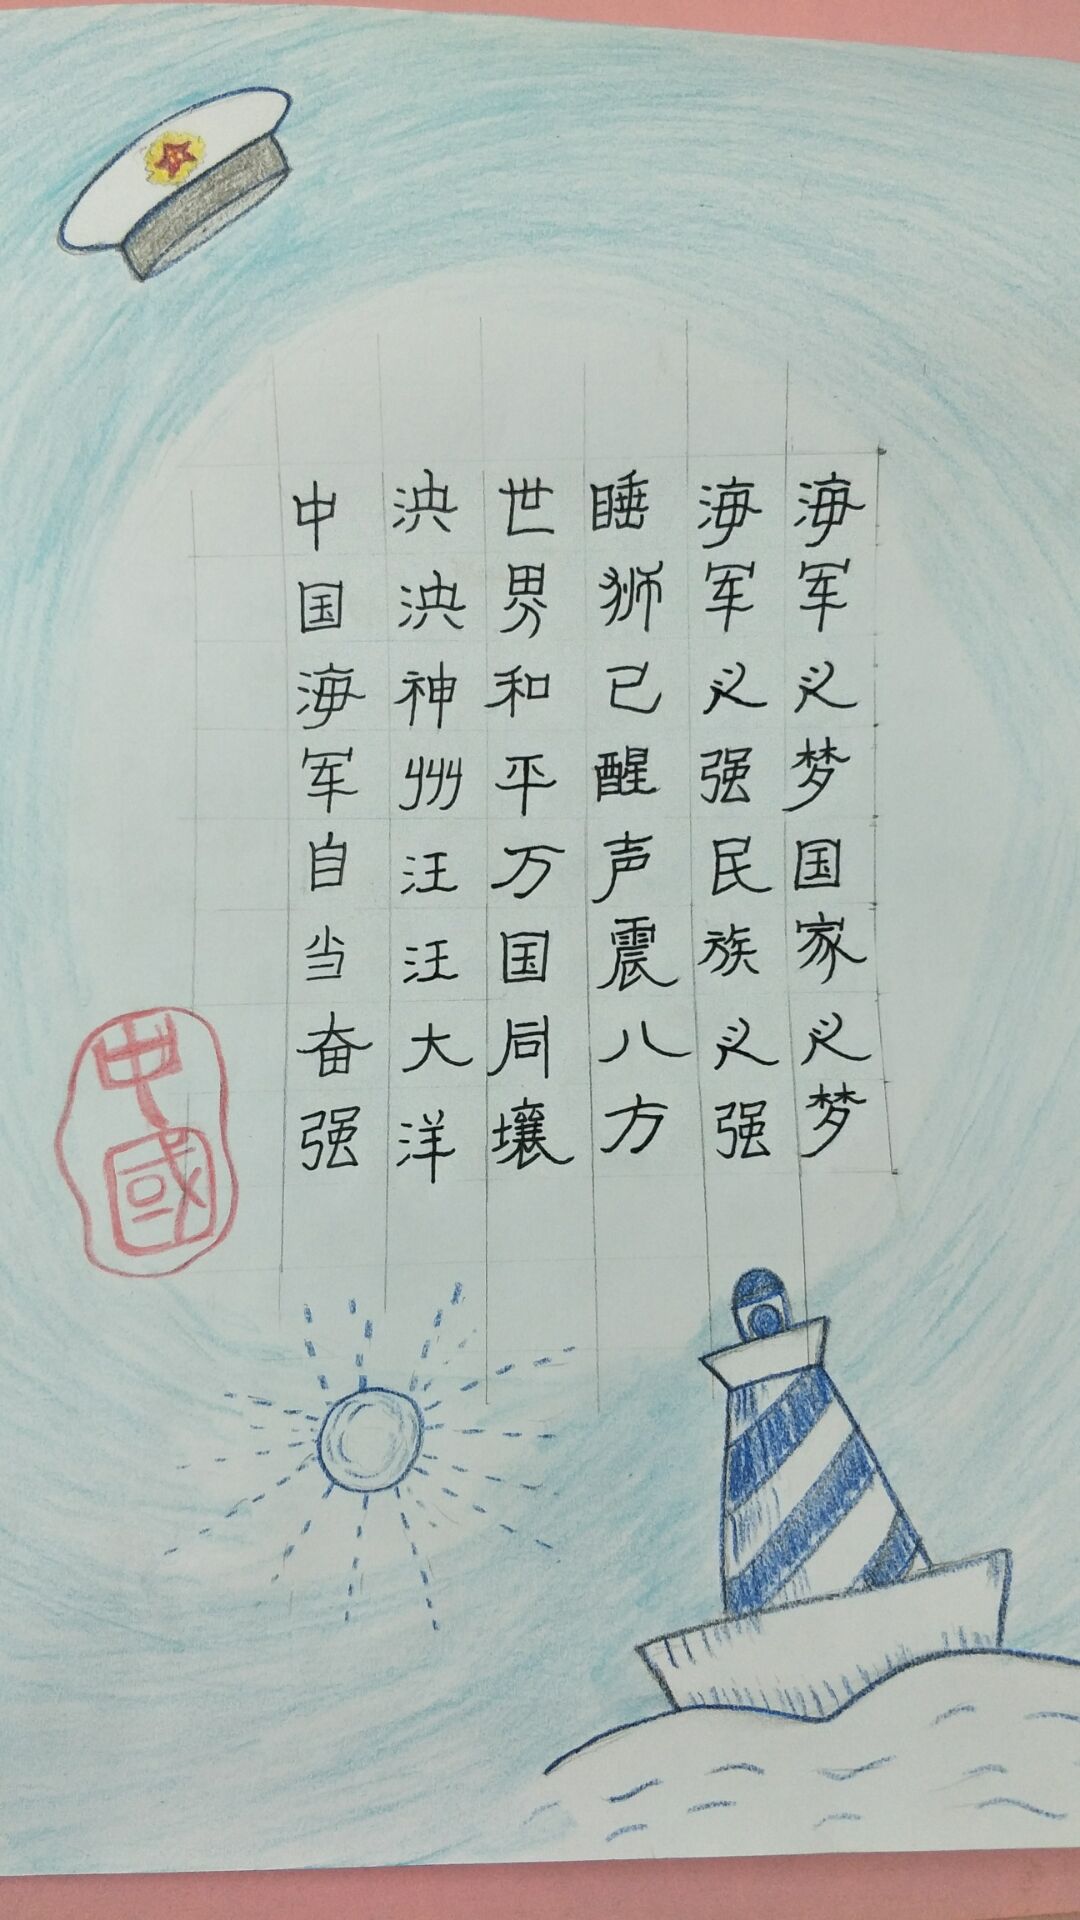 海军之梦国家之梦
海军之强民族之强
睡狮已醒声震八方
世界和平万国同壤
泱泱神州汪汪大洋
中国海军自当奋强
中國